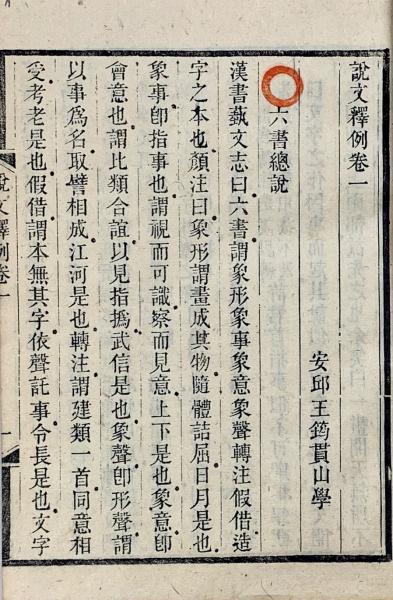 說文釋例卷一
安邱王筠貫山學
六書總說
漢書蓺文志曰六書謂象形象事象意象聲轉注假借造
字之本也顏注曰象形謂畫成其物隨體詰屈日月是也
象事卽指事也謂視而可識察而見意上下是也象意卽
會意也謂比類合誼以見指撝武信是也象聲卽形聲謂
以事爲名取譬相成江河是也轉注謂建類一首同意相
受考老是也假借謂本無其字依聲託事令長是也文字
說文釋例卷一
一